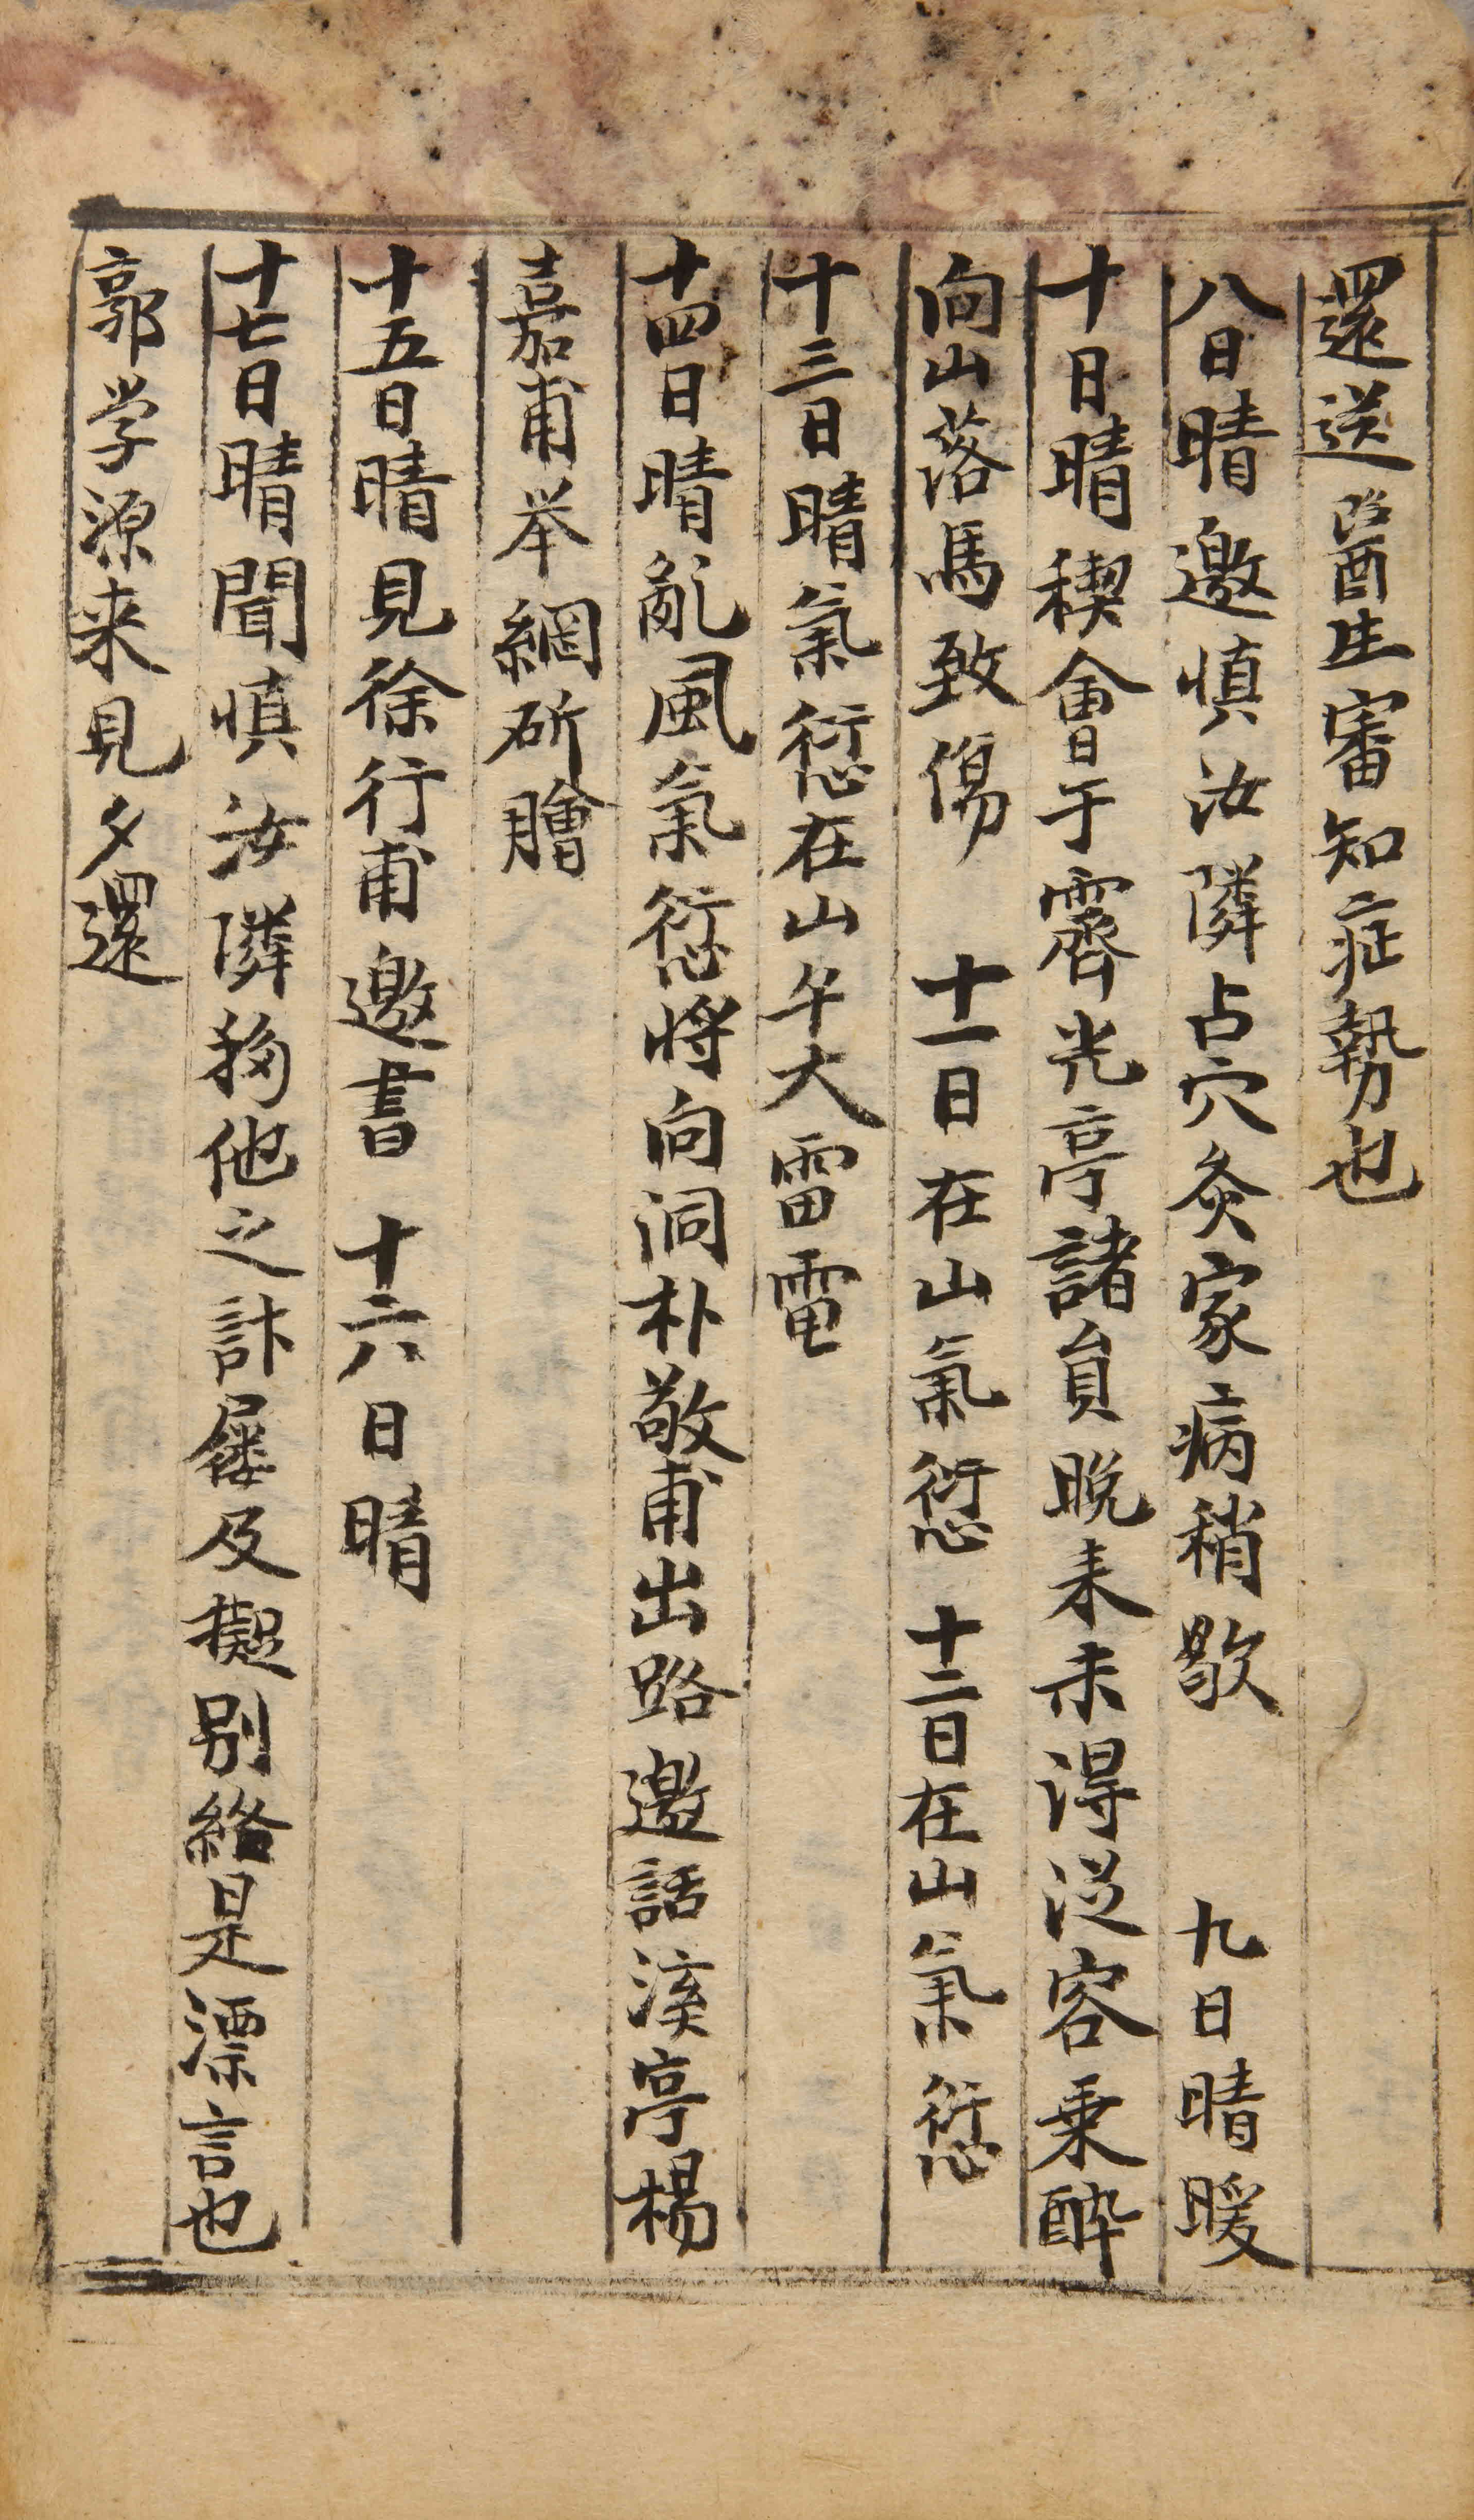 還送醫生審知症勢也
八日晴邀慎汝隣占穴灸家病稍歇 九日晴暖
十日晴稧會于霽光亭諸員晩来未得从容乗醉
向山落馬致傷 十一日在山氣愆 十二日在山氣愆
十三日晴氣愆在山午大雷電
十四日晴乱風氣愆将向洞朴敬甫出路邀話溪亭楊
嘉甫举網斫膾
十五日晴見徐行甫邀書 十六日晴
十七日晴聞慎汝隣移他之計屢及擬別絡是漂言也
郭学源来見夕還